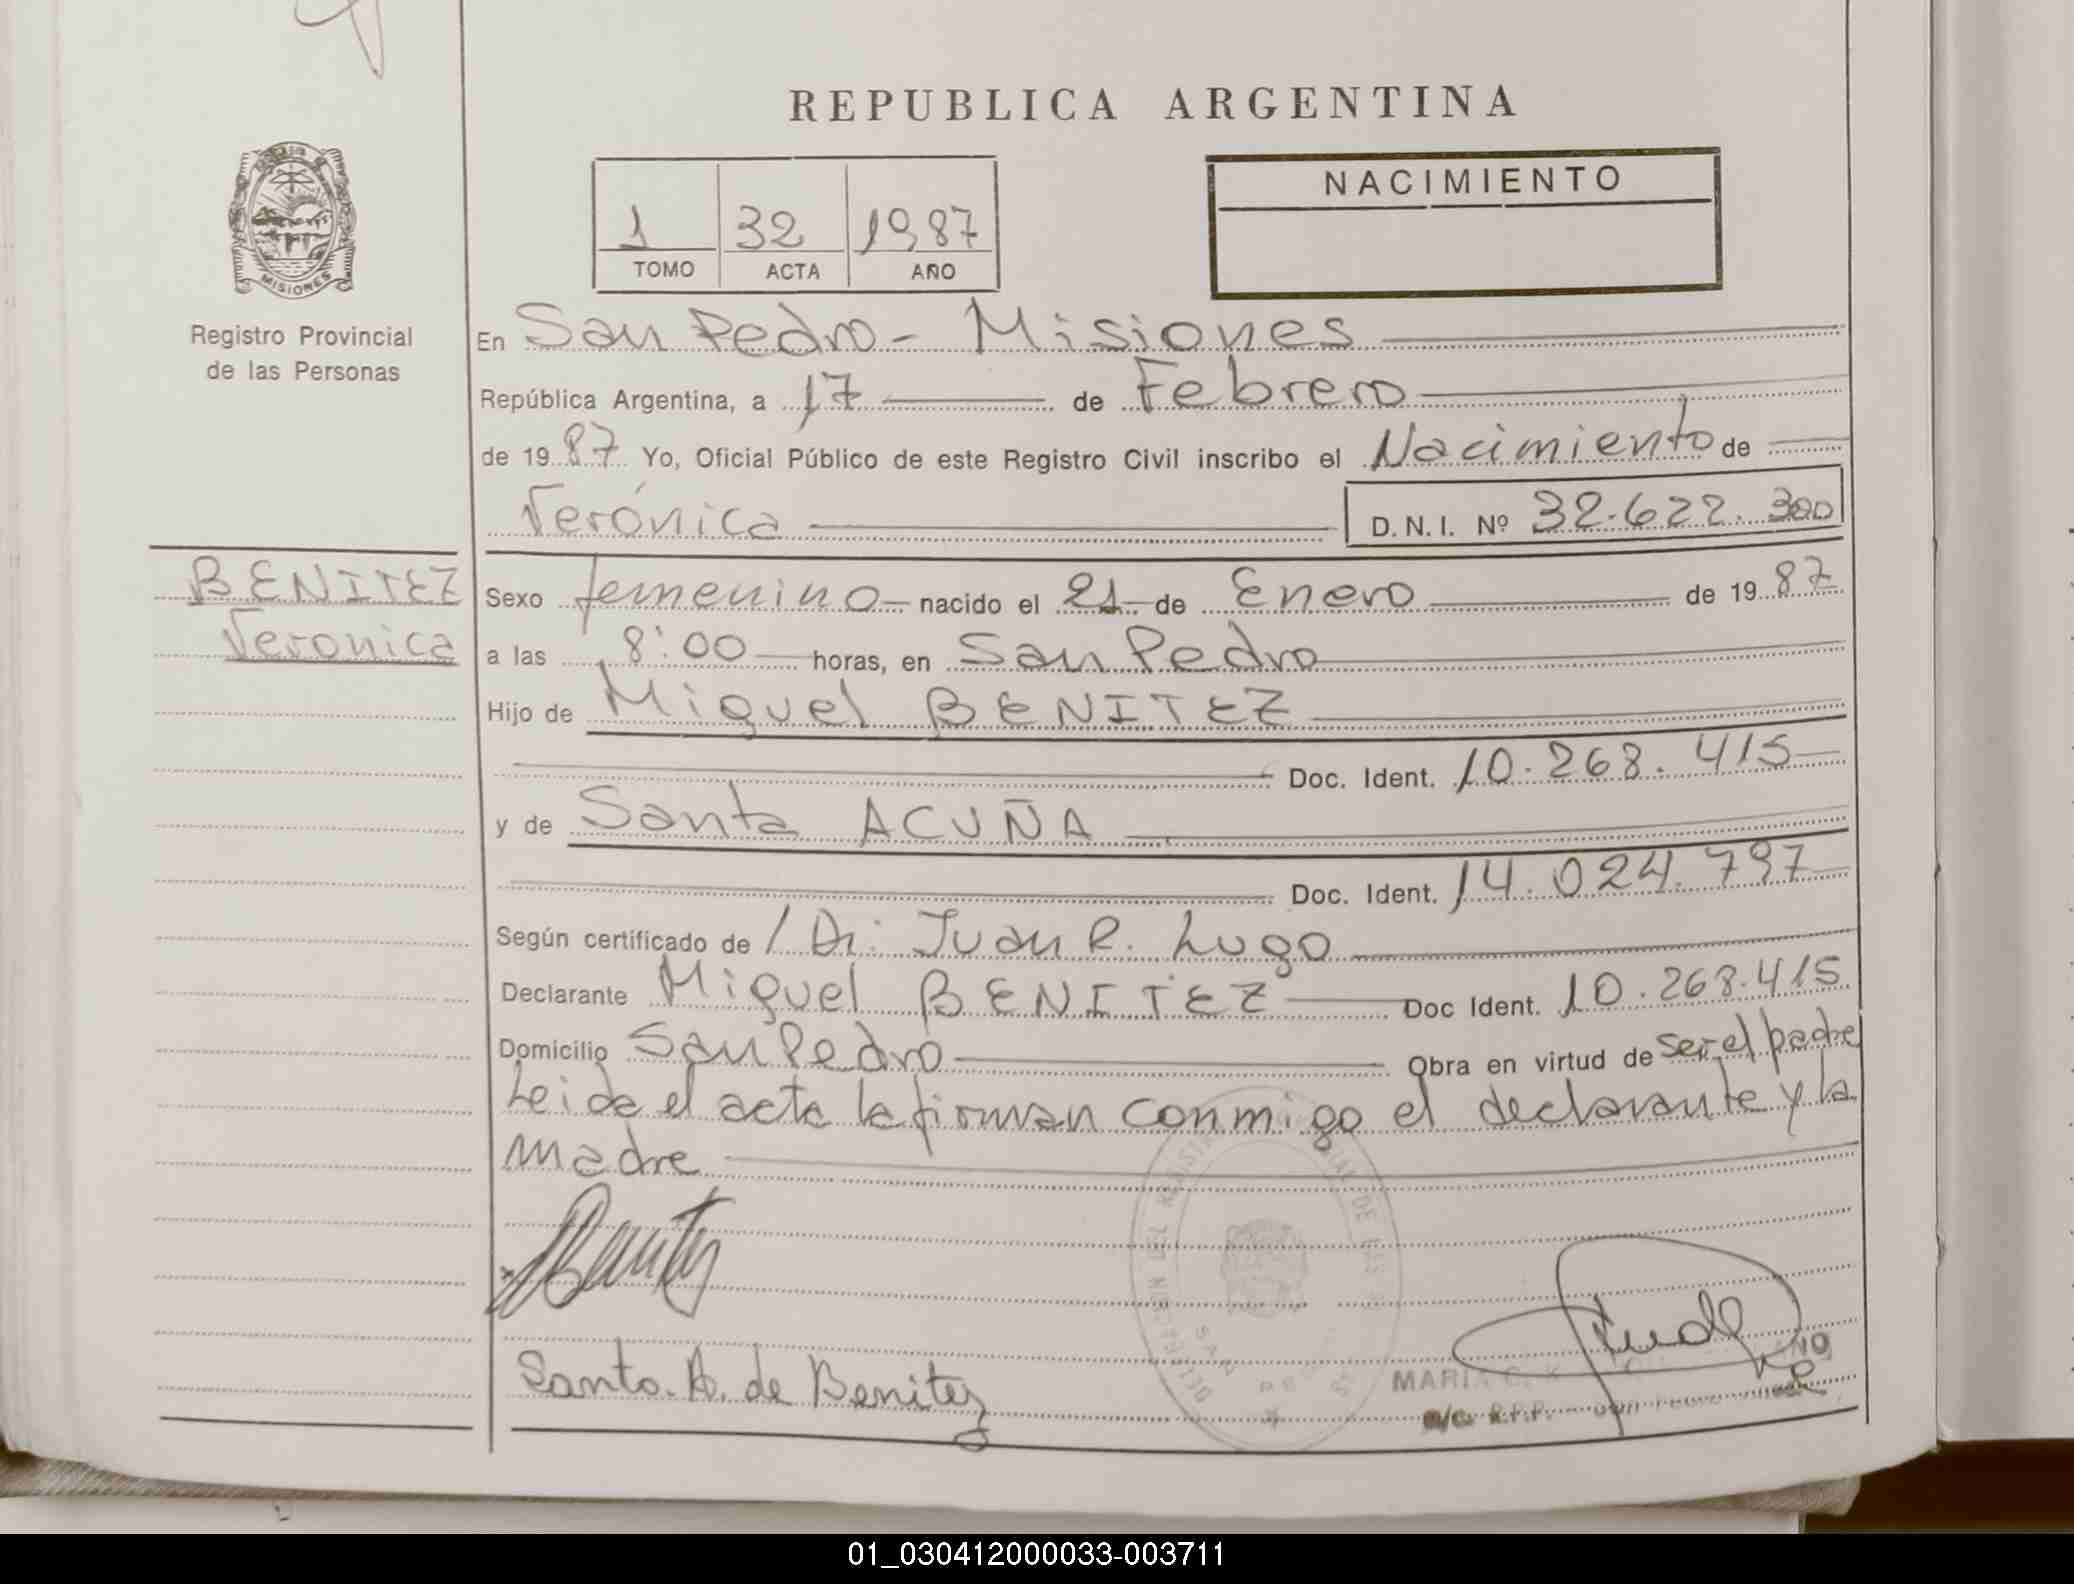 REPUBLICA ARGENTINA
NACIMIENTO
1 32 1987
TOMO ACTA AÑO
MISIONES
Registro Provincial
de las Personas
En San Pedro - Misiones
República Argentina, a 17 de Febrero
de 1987 Yo, Oficial Público de este Registro Civil inscribo el Nacimiento de
Verónica D.N.I. Nº 32.622.300
BENITEZ
Veronica
Sexo femenino nacido el 21 de Enero de 1987
a las 8:00 horas, en San Pedro
Hijo de Miguel BENITEZ
Doc. Ident. 10.268.415
y de Santa ACUÑA
Doc. Ident. 14.024.797
Según certificado de / Dr. Juan R. Lugo
Declarante Miguel BENITEZ Doc Ident. 10.268.415
Domicilio San Pedro Obra en virtud de ser el padre
Leida el acta la firman conmigo el declarante y la
madre
Benitez
Santa. A. de Benitez
MARIA C. K
01_030412000033-003711